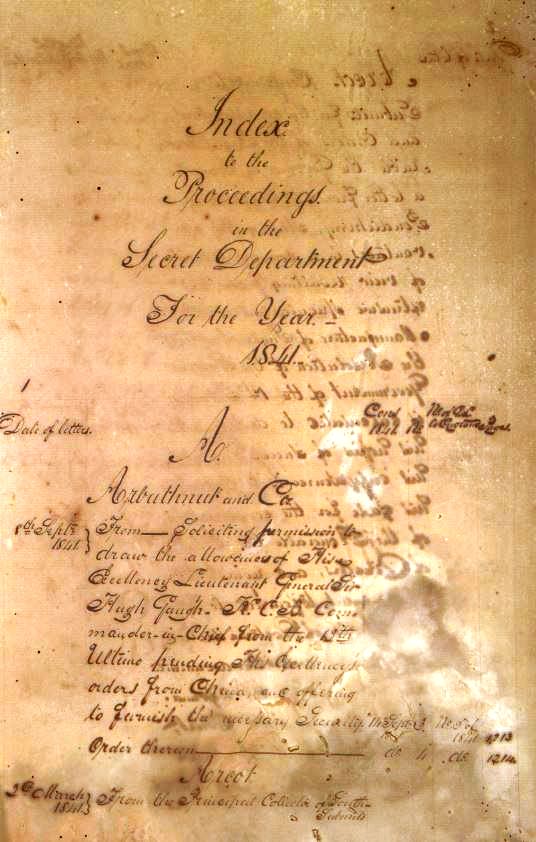 Index
to the
Proceedings.
in the
Secret Department
For the Year.
1841.
Date of letters.
Cons
1841 No
A.
Arbuthnut and Co
8th Septr 1841
From — Soliciting permission to
draw the allowances of His
Excellency Lieutenant General Sir
Hugh Gough. K. C. B. Com
mander-in-Chief from the 12th
Ultimo pending His Excellency's
orders from China, and offering
to furnish the necessary Security 14 Septr 3
1841 1213
Order thereon do 4 do 1214
Arcot
March 1841
From the Principal Collector of South